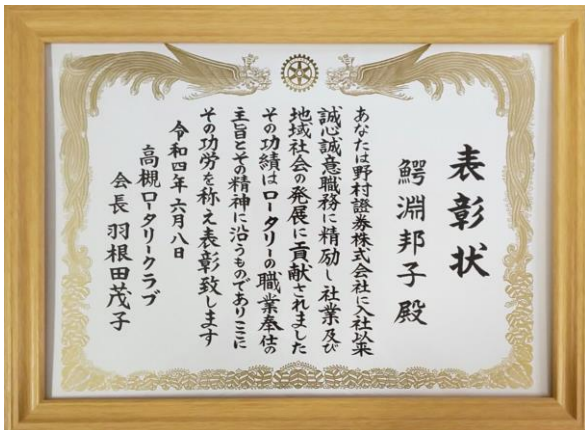 表彰状
鰐淵邦子殿
あなたは野村證券株式会社に入社以来
誠心誠意職務に精励し社業及び
地域社会の発展に貢献されました
その功績はロータリーの職業奉仕の
主旨とその精神に沿うものでありここに
その功労を称え表彰致します
令和四年六月八日
高槻ロータリークラブ
会長羽根田茂子